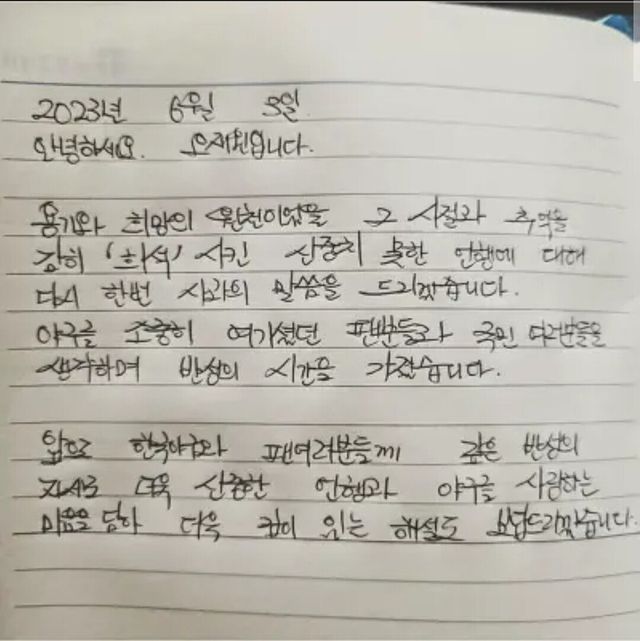 2023년 6월 3일
안녕하세요. 오재원입니다.
용기와 희망의 원천이었을 그 시절과 추억을
감히 '희석' 시킨 신중치 못한 언행에 대해
다시 한번 사과의 말씀을 드리겠습니다.
야구를 소중히 여기셨던 팬분들과 국민 여러분들을
생각하며 반성의 시간을 가졌습니다.
앞으로 한국야구와 팬여러분들께 깊은 반성의
자세로 더욱 신중한 언행과 야구를 사랑하는
마음을 담아 더욱 깊이 있는 해설로 보답드리겠습니다.